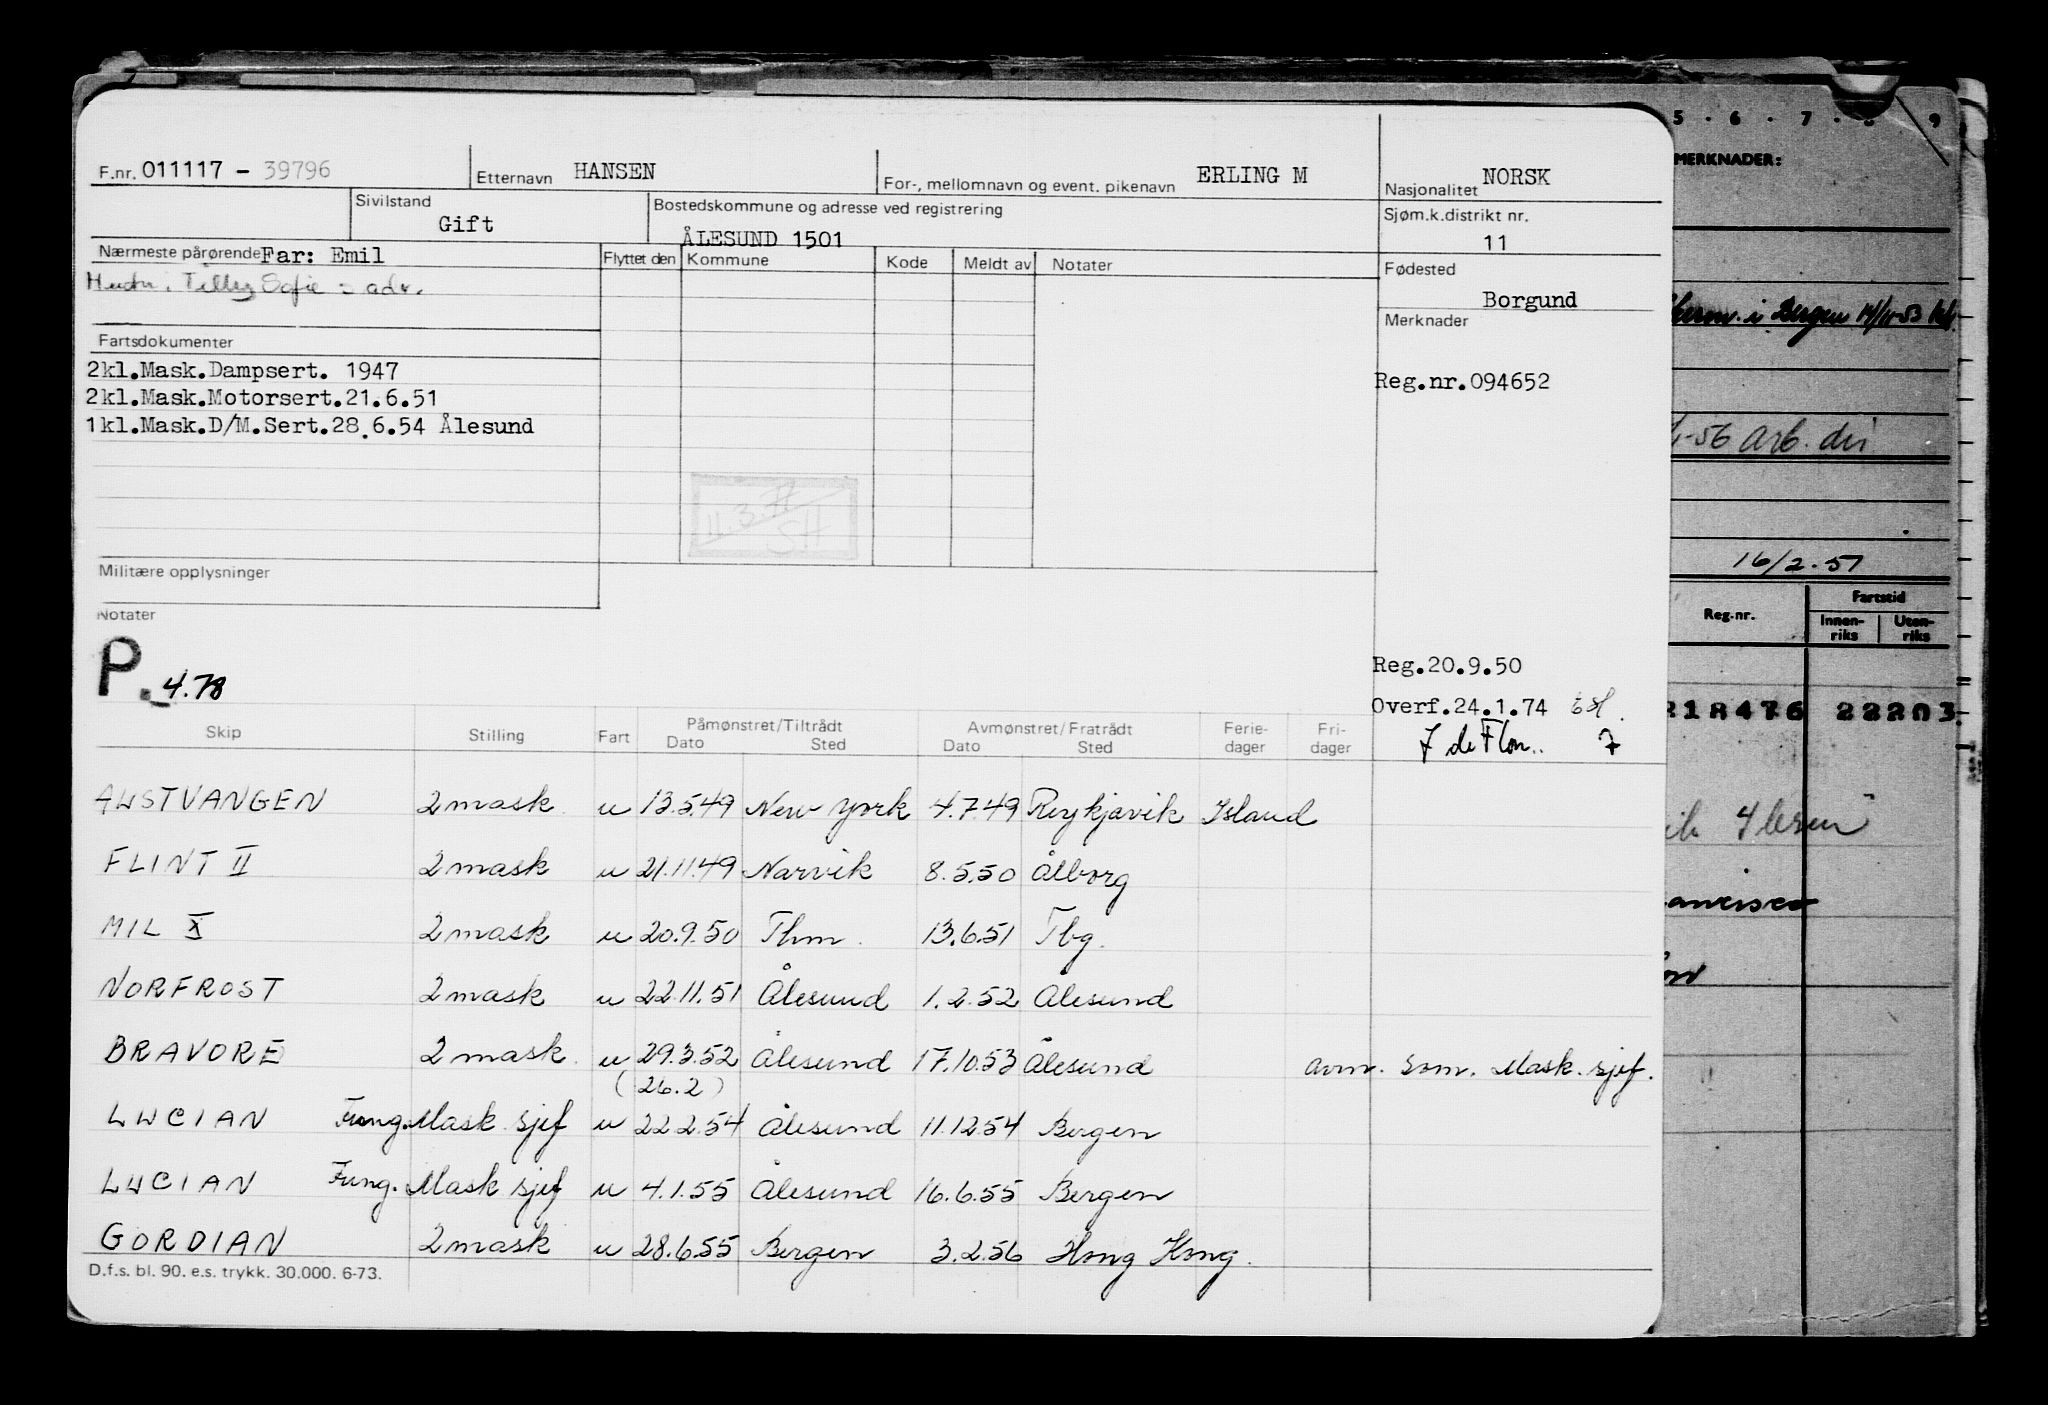 F.nr. 011117 - 39796 Etternavn HANSEN For-, mellomnavn og event. pikenavn ERLING M Nasjonalitet NORSK
Sivilstand Gift Bostedskommune og adresse ved registrering ÅLESUND 1501 Sjøm.k.distrikt nr. 11
Nærmeste pårørende Far: Emil Flyttet den Kommune Kode Meldt av Notater Fødested
Sofie = adr. Borgund
Merknader
Fartsdokumenter
2kl.Mask.Dampsert. 1947 Reg.nr.094652
2kl.Mask.Motorsert.21.6.51
1kl.Mask.D/M.Sert.28.6.54 Ålesund
SH
Militære opplysninger
Notater
P. 4.78
Reg.20.9.50
Overf.24.1.74
Skip Stilling Fart Påmønstret/Tiltrådt Dato Sted Avmønstret/Fratrådt Dato Sted Ferie-dager Fri-dager
AUSTVANGEN 2 mask u 13.5.49 New York 4.7.49 Reykjavik Island
FLINT II 2 mask u 21.11.49 Narvik 8.5.50 Ålborg
MIL X 2 mask u 20.9.50 Thm. 13.6.51 Tbg.
NORFROST 2 mask u 22.11.51 Ålesund 1.2.52 Ålesund
BRAVORE 2 mask. u 29.3.52 Ålesund 17.10.53 Ålesund avm. som. Mask. sjef.
(26.2)
LUCIAN Fung. Mask sjef u 22.2.54 Ålesund 11.12.54 Bergen
LUCIAN Fung. Mask sjef u 4.1.55 Ålesund 16.6.55 Bergen
GORDIAN 2 mask u 28.6.55 Bergen 3.2.56 Hong Kong.
D.f.s. bl. 90. e.s. trykk. 30.000. 6-73.
5 . 6 . 7 . 8 . 9
MERKNADER:
i Bergen
-56 arb. dir
16/2-51
Reg.nr. Fartstid
Innen-riks Uten-riks
218476 22203